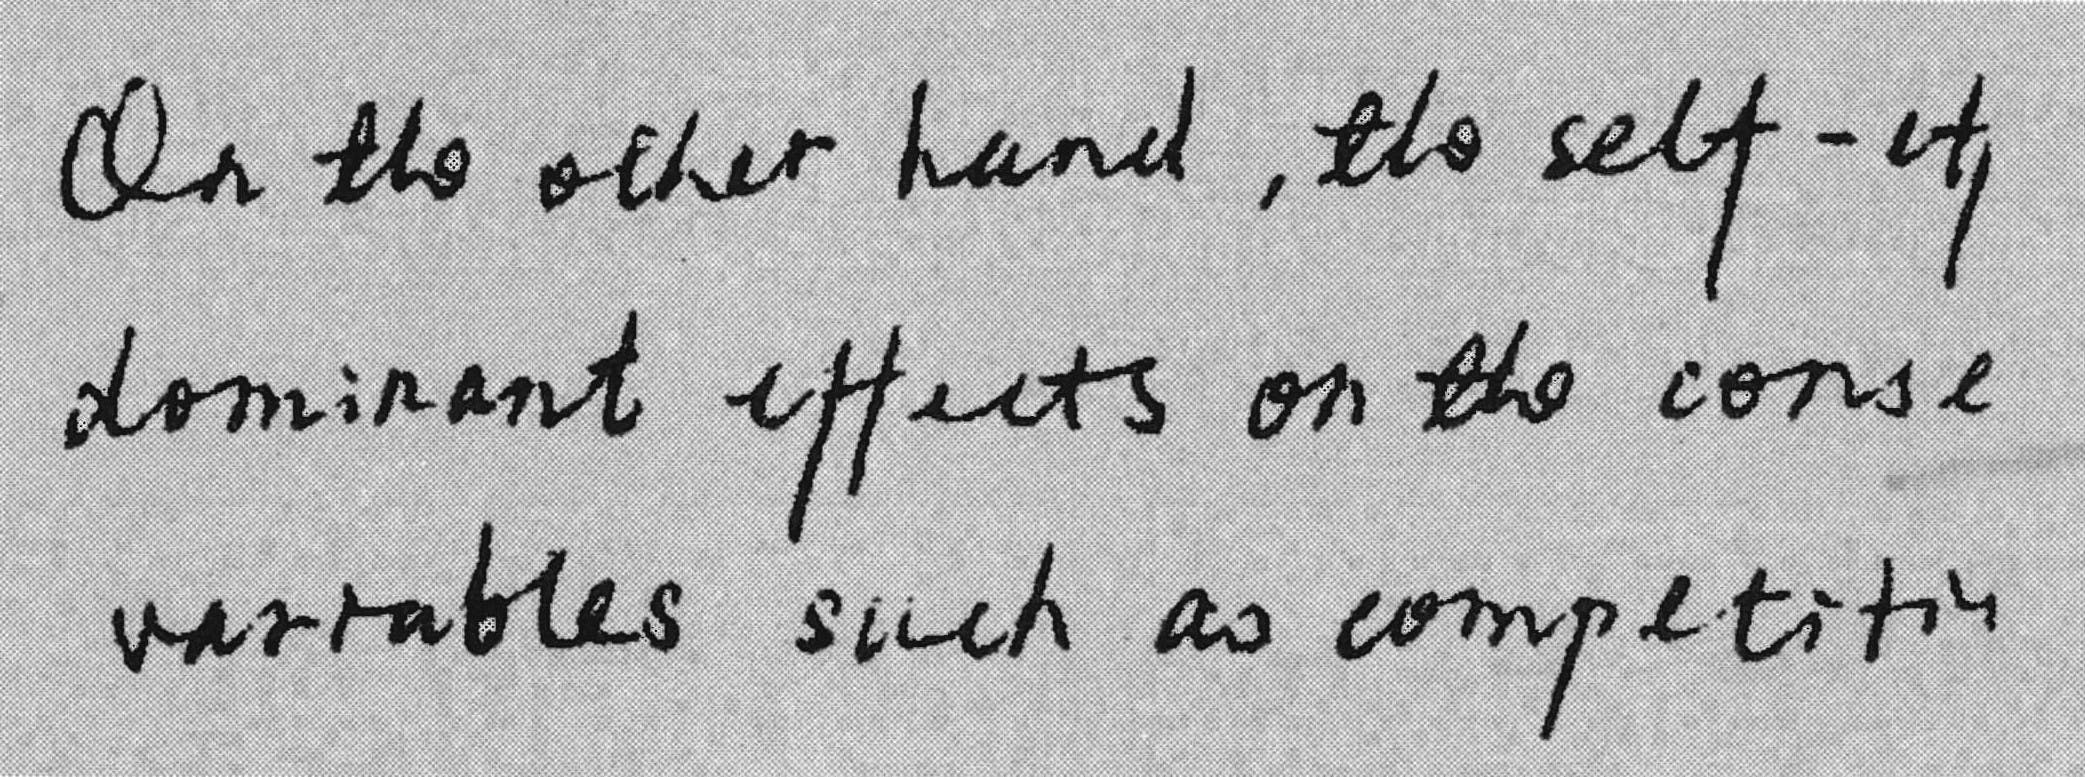 On the other hand, the self-ef
dominant effects on the conse
variables such as competitiv